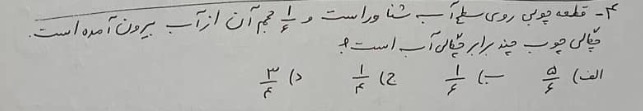 ۴- قطعه چوبی روی سطح آب شناور است و ۱/۶ حجم آن از آب بیرون آمده است.
چگالی چوب چند برابر چگالی آب است؟
الف) ۵/۶ ب) ۱/۶ ج) ۱/۴ د) ۳/۴